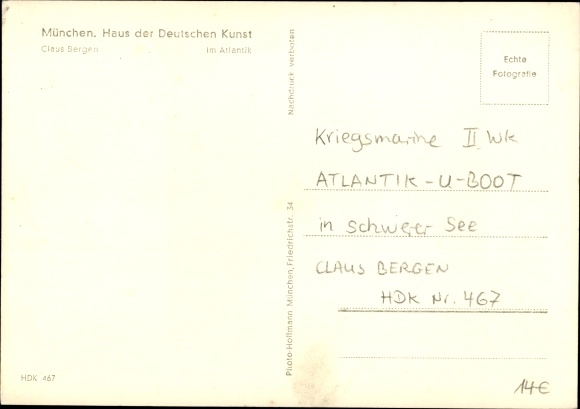 München. Haus der Deutschen Kunst
Claus Bergen Im Atlantik
Nachdruck verboten
Photo-Hoffmann München, Friedrichstr. 34
Echte
Fotografie
Kriegsmarine II. WK
ATLANTIK-U-BOOT
in schwerer See
CLAUS BERGEN
HDK Nr. 467
HDK 467
14€